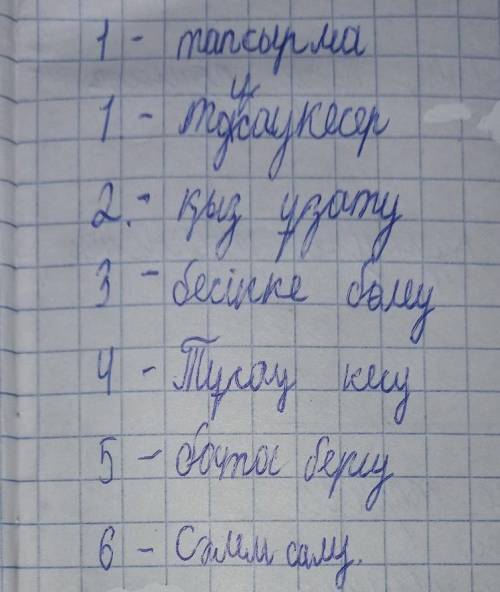 1 - тапсырма
1 - тұсаукесер
2.- қыз ұзату
3 - бесікке бөлеу
4 - Тұсау кесу
5 - бата беру
6 - Сәлем салу.